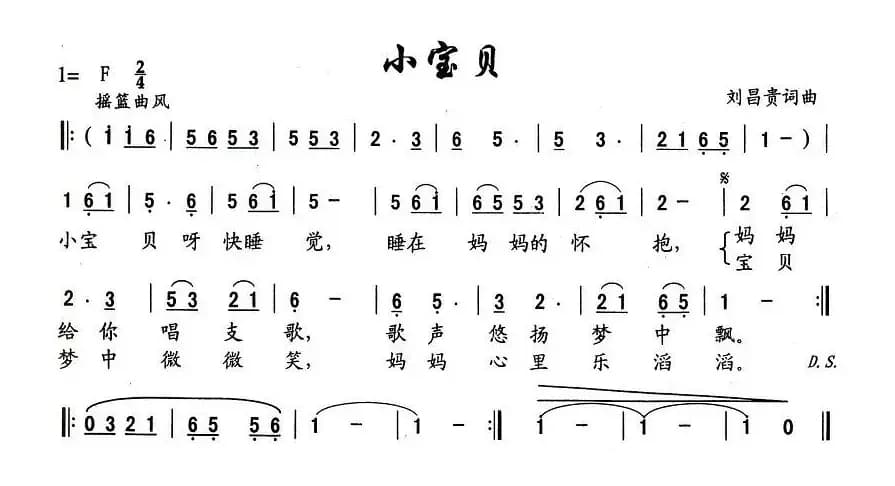 小宝贝
1= F 2/4
摇篮曲风
刘昌贵词曲
‖: ( i i 6 | 5 6 5 3 | 5 5 3 | 2 · 3 | 6 5 · | 5 3 · | 2 1 6 5 | 1 – ) |
1 6 1 | 5 · 6 | 5 6 i | 5 – | 5 6 i | 6 5 5 3 | 2 6 1 | 2 – | 2 6 1 |
小宝 贝 呀 快睡 觉, 睡在 妈 妈的怀 抱, { 妈 妈
宝 贝
2 · 3 | 5 3 2 1 | 6 – | 6 5 · | 3 2 · | 2 1 6 5 | 1 – :‖
给 你 唱 支 歌, 歌 声 悠 扬 梦 中 飘。
梦 中 微 微 笑, 妈 妈 心 里 乐 滔 滔。 D.S.
‖: 0 3 2 1 | 6 5 5 6 | 1 – | 1 – :‖ 1 – | 1 – | 1 0 ‖